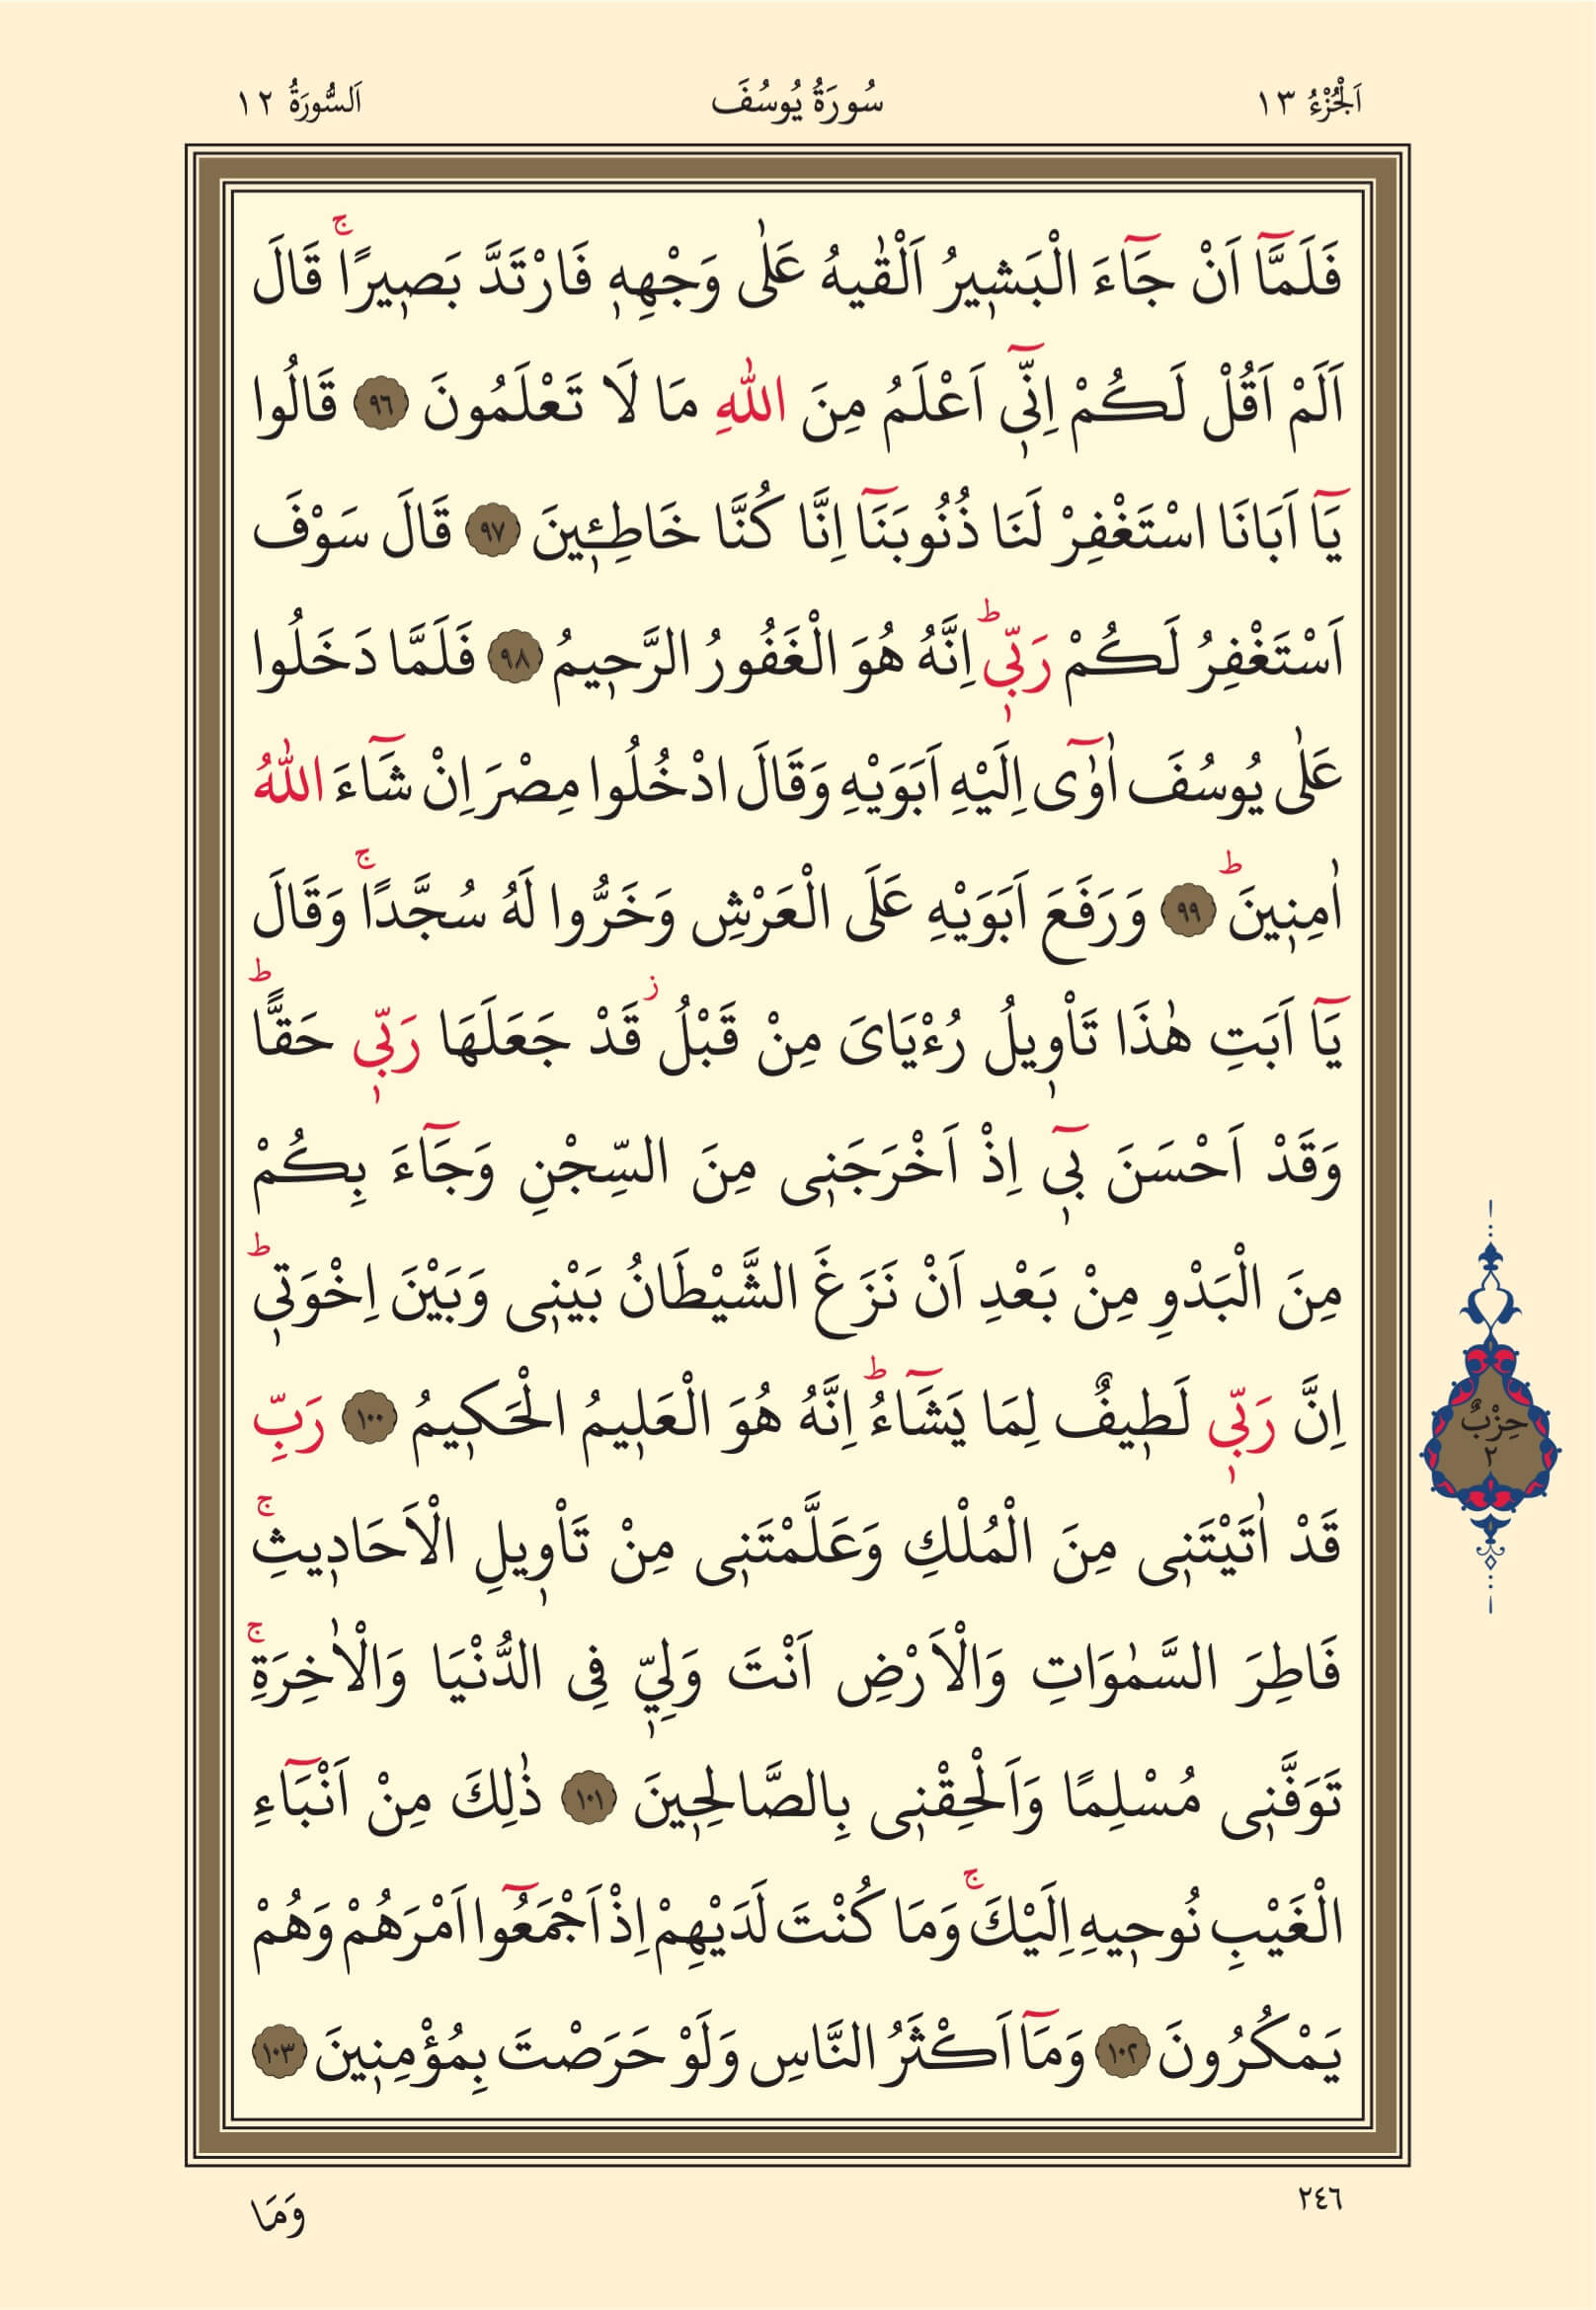 اَلْجُزْءُ ١٣
سُورَةُ يُوسُفَ
اَلسُّورَةُ ١٢
فَلَمَّٓا اَنْ جَٓاءَ الْبَش۪يرُ اَلْقٰيهُ عَلٰى وَجْهِه۪ فَارْتَدَّ بَص۪يرًاۚ قَالَ
اَلَمْ اَقُلْ لَكُمْ اِنّ۪ٓي اَعْلَمُ مِنَ اللّٰهِ مَا لَا تَعْلَمُونَ ﴿٩٦﴾ قَالُوا
يَٓا اَبَانَا اسْتَغْفِرْ لَنَا ذُنُوبَنَٓا اِنَّا كُنَّا خَاطِـ۪ٔينَ ﴿٩٧﴾ قَالَ سَوْفَ
اَسْتَغْفِرُ لَكُمْ رَبّ۪يۜ اِنَّهُ هُوَ الْغَفُورُ الرَّح۪يمُ ﴿٩٨﴾ فَلَمَّا دَخَلُوا
عَلٰى يُوسُفَ اٰوٰٓى اِلَيْهِ اَبَوَيْهِ وَقَالَ ادْخُلُوا مِصْرَ اِنْ شَٓاءَ اللّٰهُ
اٰمِن۪ينَۜ ﴿٩٩﴾ وَرَفَعَ اَبَوَيْهِ عَلَى الْعَرْشِ وَخَرُّوا لَهُ سُجَّدًاۚ وَقَالَ
يَٓا اَبَتِ هٰذَا تَأْو۪يلُ رُءْيَايَ مِنْ قَبْلُۘ قَدْ جَعَلَهَا رَبّ۪ي حَقًّاۜ
وَقَدْ اَحْسَنَ ب۪ٓي اِذْ اَخْرَجَن۪ي مِنَ السِّجْنِ وَجَٓاءَ بِكُمْ
مِنَ الْبَدْوِ مِنْ بَعْدِ اَنْ نَزَغَ الشَّيْطَانُ بَيْن۪ي وَبَيْنَ اِخْوَت۪يۜ
اِنَّ رَبّ۪ي لَط۪يفٌ لِمَا يَشَٓاءُۜ اِنَّهُ هُوَ الْعَل۪يمُ الْحَك۪يمُ ﴿١٠٠﴾ رَبِّ
قَدْ اٰتَيْتَن۪ي مِنَ الْمُلْكِ وَعَلَّمْتَن۪ي مِنْ تَأْو۪يلِ الْاَحَاد۪يثِۚ
فَاطِرَ السَّمٰوَاتِ وَالْاَرْضِ اَنْتَ وَلِيّ۪ فِي الدُّنْيَا وَالْاٰخِرَةِۚ
تَوَفَّن۪ي مُسْلِمًا وَاَلْحِقْن۪ي بِالصَّالِح۪ينَ ﴿١٠١﴾ ذٰلِكَ مِنْ اَنْبَٓاءِ
الْغَيْبِ نُوح۪يهِ اِلَيْكَۚ وَمَا كُنْتَ لَدَيْهِمْ اِذْ اَجْمَعُٓوا اَمْرَهُمْ وَهُمْ
يَمْكُرُونَ ﴿١٠٢﴾ وَمَٓا اَكْثَرُ النَّاسِ وَلَوْ حَرَصْتَ بِمُؤْمِن۪ينَ ﴿١٠٣﴾
حِزْبٌ
٢
٢٤٦
وَمَا